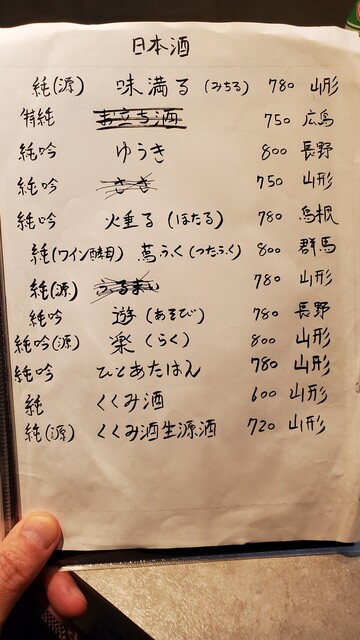 日本酒
純(源) 味満る(みちる) 780 山形
特純 お立ち酒 750 広島
純吟 ゆうき 800 長野
純吟 750 山形
純吟 火垂る(ほたる) 780 島根
純(ワイン酵母) 蔦ふく(つたふく) 800 群馬
純(源) 780 山形
純吟 遊(あそび) 780 長野
純吟(源) 楽(らく) 800 山形
純吟 ひとあたはん 780 山形
純 くくみ酒 600 山形
純(源) くくみ酒生源酒 720 山形